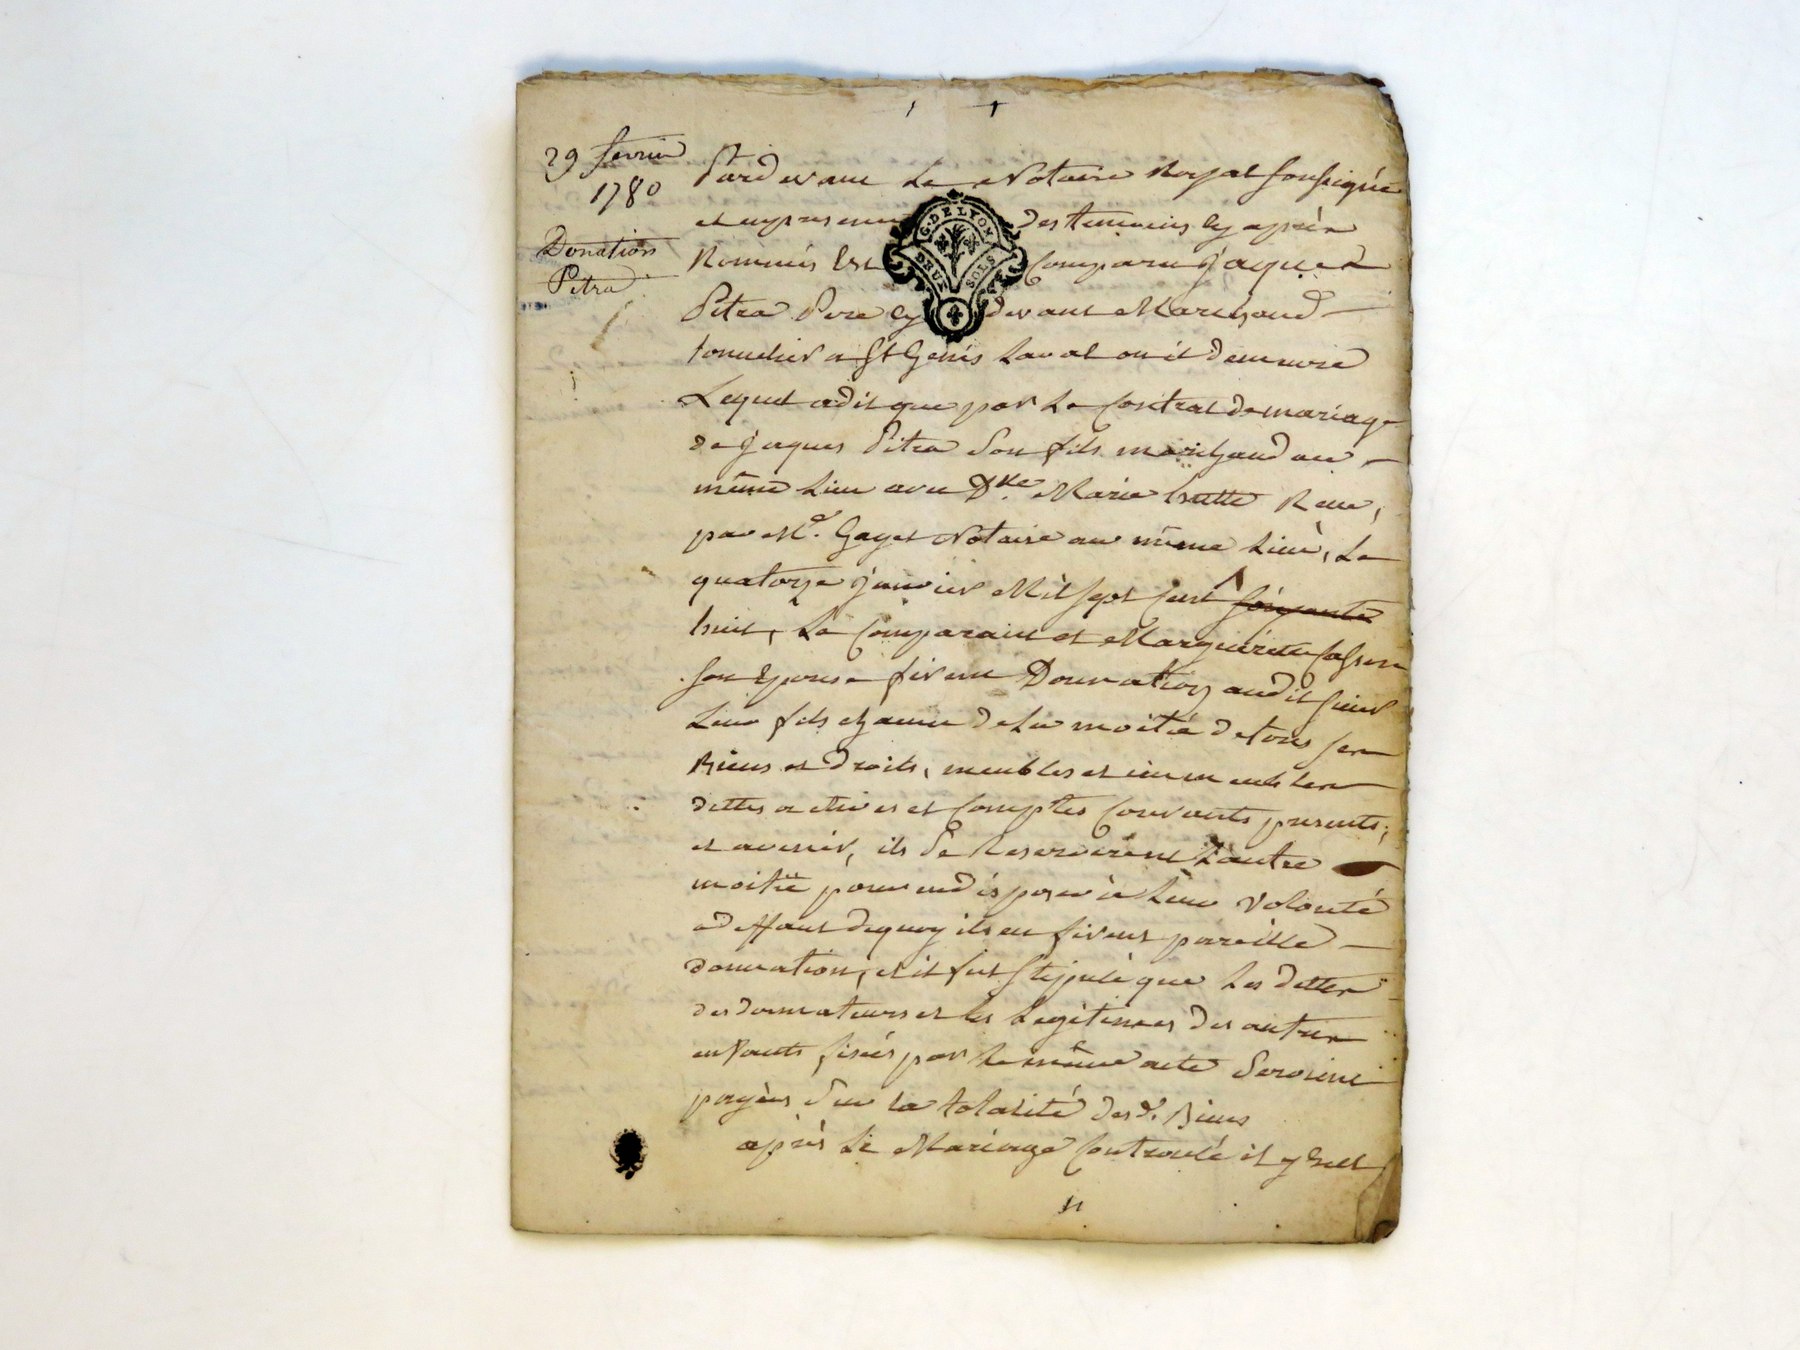 29 fevrier
1780
Donation
Pitra
Pardevant Le Notaire Royal soussigné
et en presence des temoins cy après
Nommés Est Comparu jaques
Pitra Pere cy devant Marchand
tonnelier a St Genis Laval ou il demeure
Lequel a dit que par Le Contrat de mariage
de jaques Pitra son fils marchand au
même Lieu avec Dlle Marie Reçu,
par Me. Gayet Notaire au même Lieu, Le
quatorze janvier Mil sept Cent soixante
huit, Le Comparant et Marguerite
son Epouse firent Donnation audit sieur
Leur fils chacun de La moitié de tous ses
Biens et droits, meubles et immeubles
dettes actives et Comptes Courants presents,
et avenir, ils se Reserverent L'autre
moitié pour en disposer à Leur Volonté
a deffaut dequoy ils en firent pareille
donnation, et il fut stipulé que Les dettes
des donnateurs et les Legitimes des autres
enfants fixées par Le même acte seroient
payées sur La totalité desd. Biens
après Le Mariage Contracté il y eut
G. DE LYON
DEUX SOLS